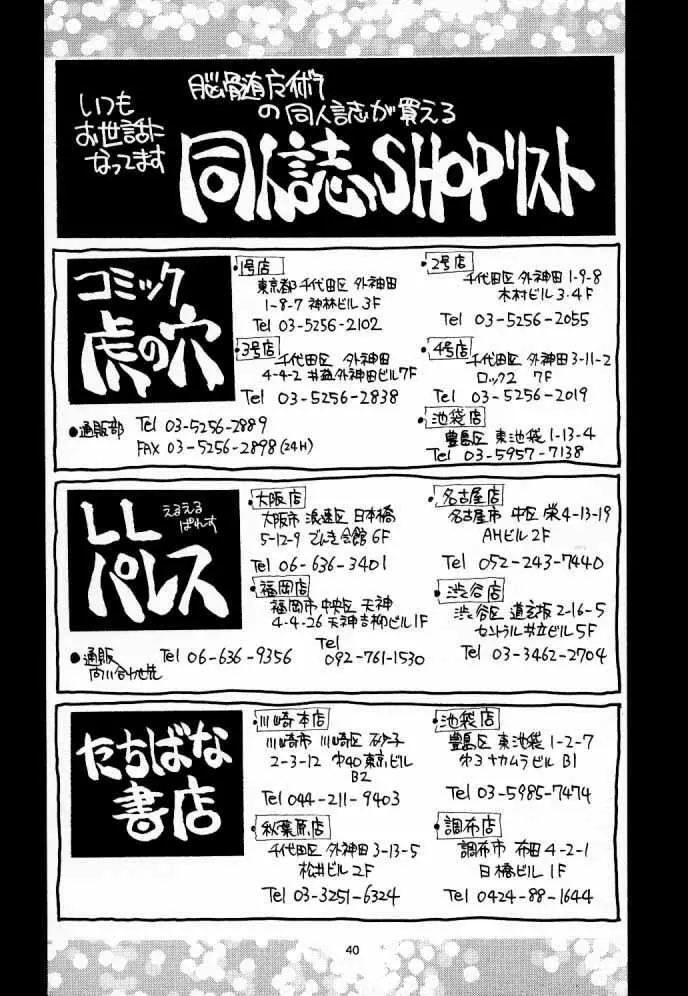 いつも
お世話に
なってます
脳髄
の同人誌が買える
同人誌SHOPリスト
コミック
虎の穴
•1号店
東京都千代田区 外神田
1-8-7 神林ビル 3F
Tel 03-5256-2102
•2号店
千代田区 外神田 1-9-8
木村ビル 3.4F
Tel 03-5256-2055
•3号店
千代田区 外神田
4-4-2 外神田ビル7F
Tel 03-5256-2838
•4号店
千代田区 外神田3-11-2
ロック2 7F
Tel 03-5256-2019
●通販部 Tel 03-5256-2889
FAX 03-5256-2898(24H)
•池袋店
豊島区 東池袋 1-13-4
Tel 03-5957-7138
LL
パレス
えるえる
ぱれす
•大阪店
大阪市 浪速区 日本橋
5-12-9 でんき会館 6F
Tel 06-636-3401
•名古屋店
名古屋市 中区 栄4-13-19
AHビル 2F
Tel 052-243-7440
•福岡店
福岡市 中央区 天神
4-4-26 天神吉柳ビル1F
Tel
092-761-1530
•渋谷店
渋谷区 道玄坂 2-16-5
セントラル共立ビル5F
Tel 03-3462-2704
●通販 Tel 06-636-9356
問い合わせ先
たちばな
書店
•川崎本店
川崎市 川崎区 砂子
2-3-12 中40東京ビル
B2
Tel 044-211-9403
•池袋店
豊島区 東池袋 1-2-7
ナカムラビル B1
Tel 03-5985-7474
•秋葉原店
千代田区 外神田 3-13-5
松井ビル 2F
Tel 03-3251-6324
•調布店
調布市 布田 4-2-1
日橋ビル 1F
Tel 0424-88-1644
40